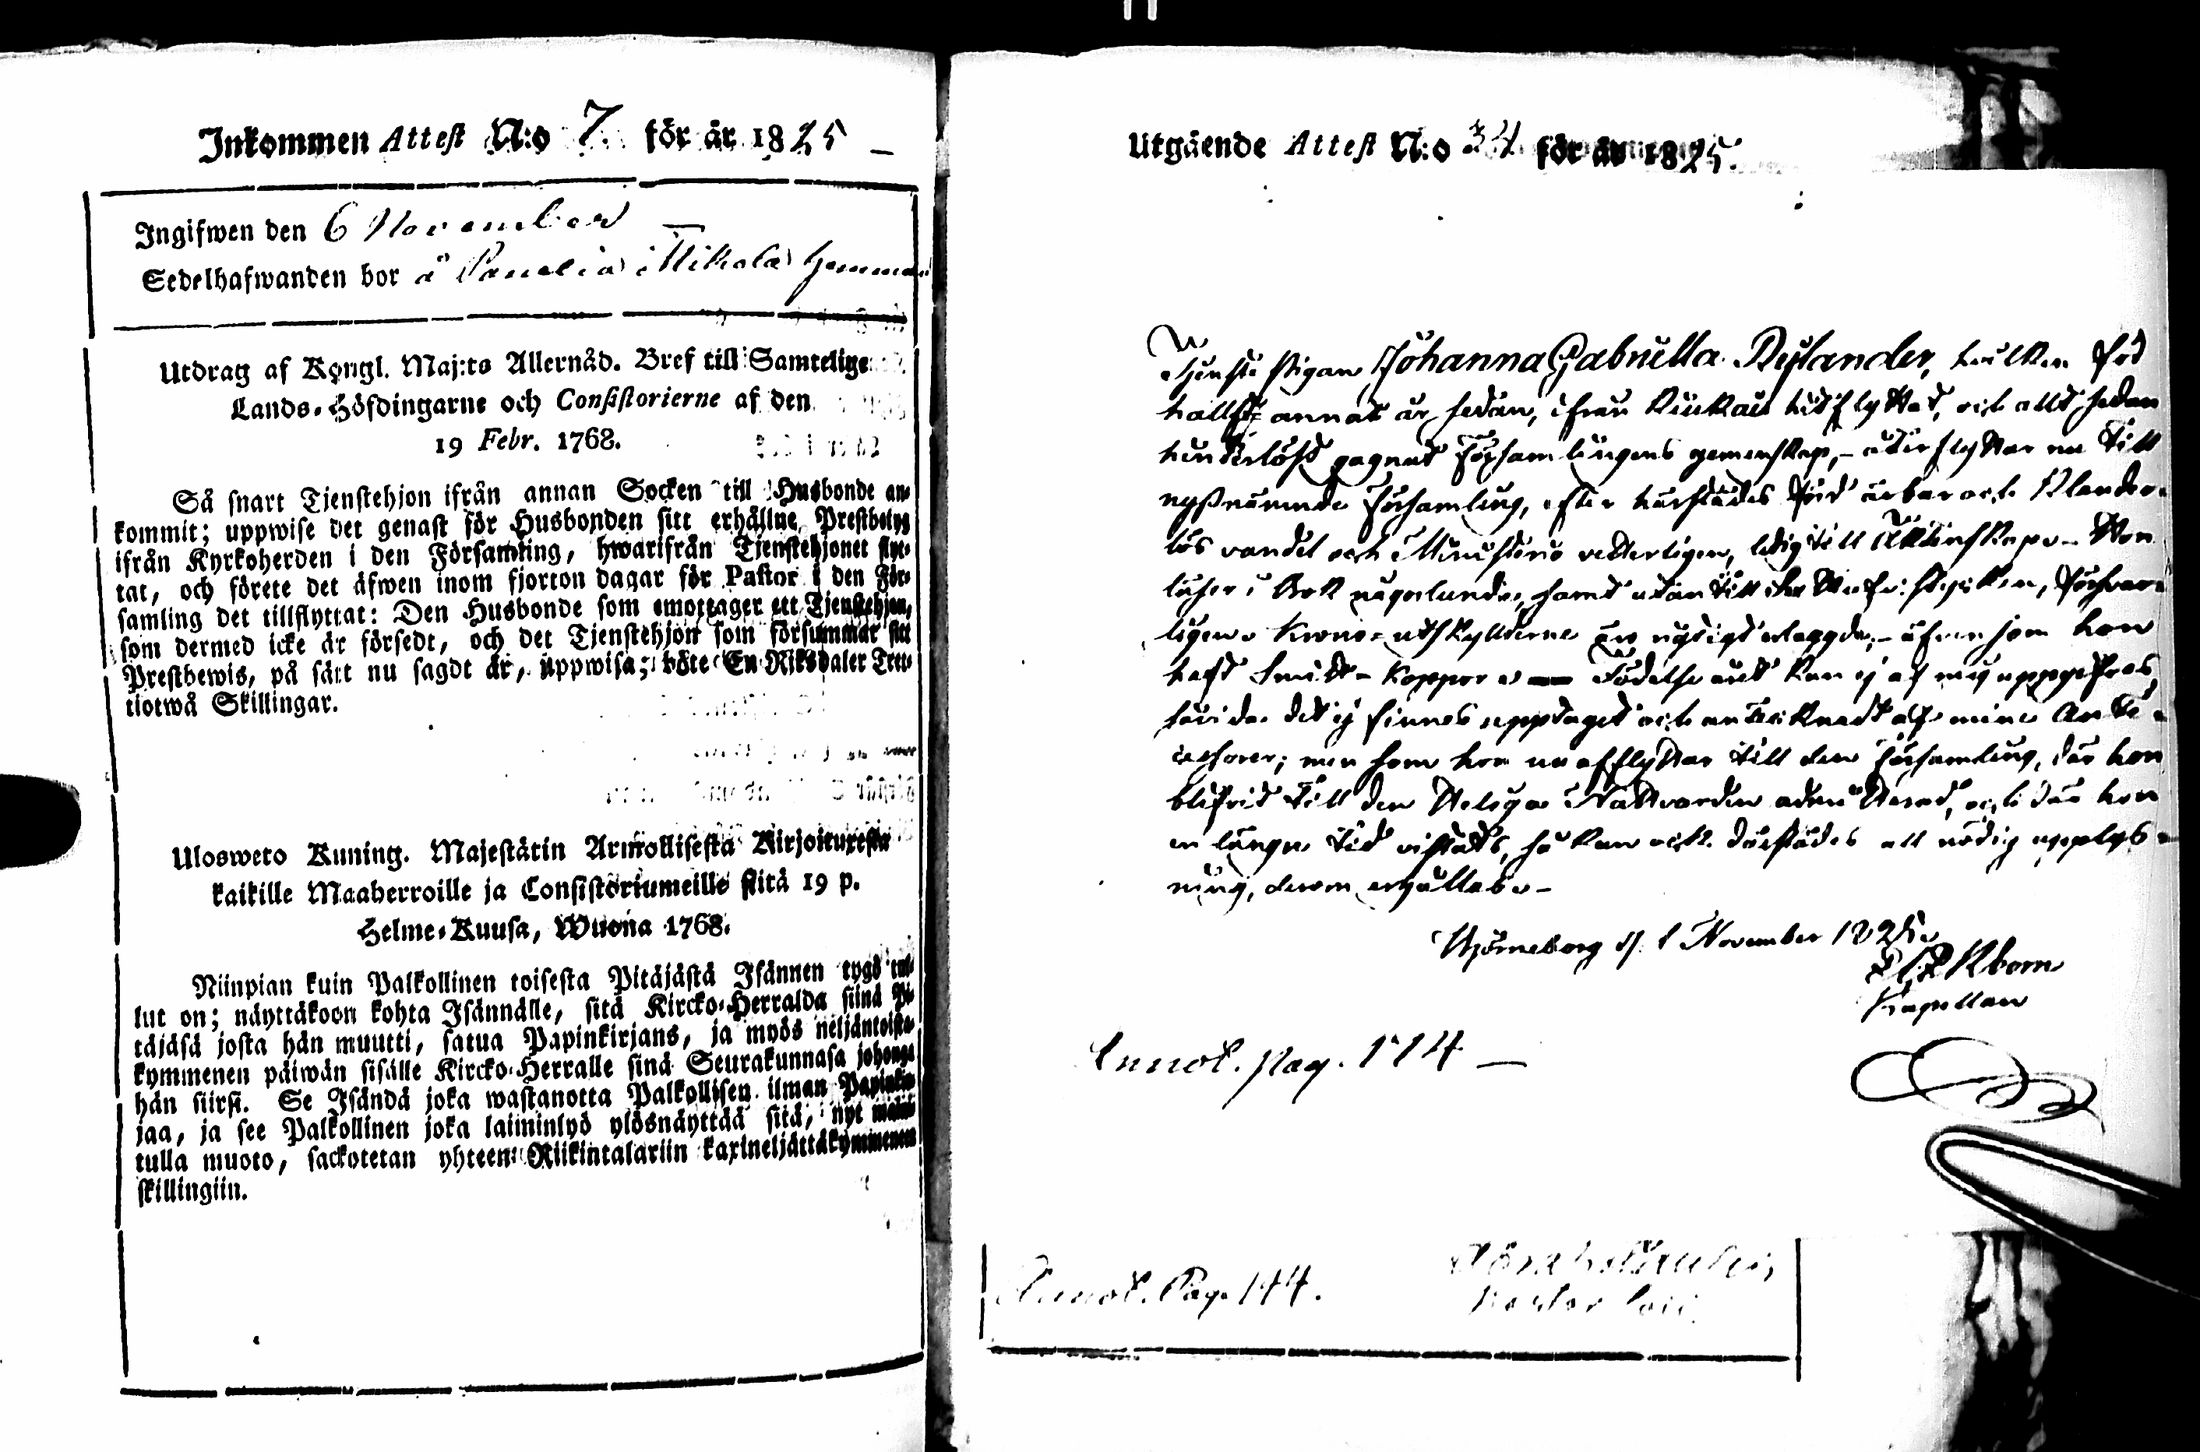 Inkommen Attest N:o 7. för år 1825 –
Ingifwen den 6 November
Sedelhafwanden bor å Panelia Mikola Hemman
Utdrag af Kongl. Maj:ts Allernåd. Bref till Samtelige
Lands-Höfdingarne och Consistorierne af den
19 Febr. 1768.
Så snart Tjenstehjon ifrån annan Socken till Husbonde an-
kommit; uppwise det genast för Husbonden sitt erhållne Prestbetyg
ifrån Kyrkoherden i den Församling, hwarifrån Tjenstehjonet flyt-
tat, och förete det äfwen inom fjorton dagar för Pastor i den För-
samling det tillflyttat: Den Husbonde som emottager ett Tjenstehjon,
som dermed icke är försedt, och det Tjenstehjon som försummar sitt
Prestbewis, på sätt nu sagdt är, uppwisa; böte En Riksdaler Tret-
tiotwå Skillingar.
Ulosweto Kuning. Majestätin Armollisesta Kirjoituxesta
kaikille Maaherroille ja Consistoriumeille siitä 19 p.
Helme-Kuusa, Wuona 1768.
Niinpian kuin Palkollinen toisesta Pitäjästä Isännen tygö tul-
lut on; näyttäkoon kohta Isännälle, sitä Kircko-Herralda siinä Pi-
täjäsä josta hän muutti, satua Papinkirjans, ja myös neljäntoista-
kymmenen päiwän sisälle Kircko-Herralle sinä Seurakunnasa johonga
hän siirsi. Se Isändä joka wastanotta Palkollisen ilman Papinkir-
jaa, ja see Palkollinen joka laiminlyö ylösnäyttää sitä, nyt mainit-
tulla muoto, sackotetan yhteen Riikintalariin kaxineljättäkymmenen
skillingiin.
Utgående Attest N:o 34 för år 1825.
Tjenste Pigan Johanna Gabriella Rylander, hvilken för
halft annat år sedan, ifrån Kiukais hitflyttat, och allt sedan
hinderlöst gagnat Församlingens gemenskap, – återflyttar nu till
nyssnämnde Församling, efter härstädes fört ärbar och klander-
lös vandel och Ministerio vetterligen, ledig till Äktenskap. – Hon
läser i Bok någorlunda, samt utan till
ligen. Krono-utskylderne äro nyligt erlaggda; – äfven som hon
haft Smitt-koppor. – Födelse året kan ej af mig uppgifvas,
såvida det ej finnes upptaget och antecknadt af mine Ante-
cessorer; men som hon nu afflyttar till den Församling, där hon
blifvit till den Heliga Nattvarden admitterad, och där hon
en längre tid vistats, så kan ock därstädes all nödig upplys-
ning, derom erhållas. –
Björneborg d. 1 November 1825.
Kapellan
Annot. pag. 174 –
Annot. Pag. 144.
Pastor Loci.